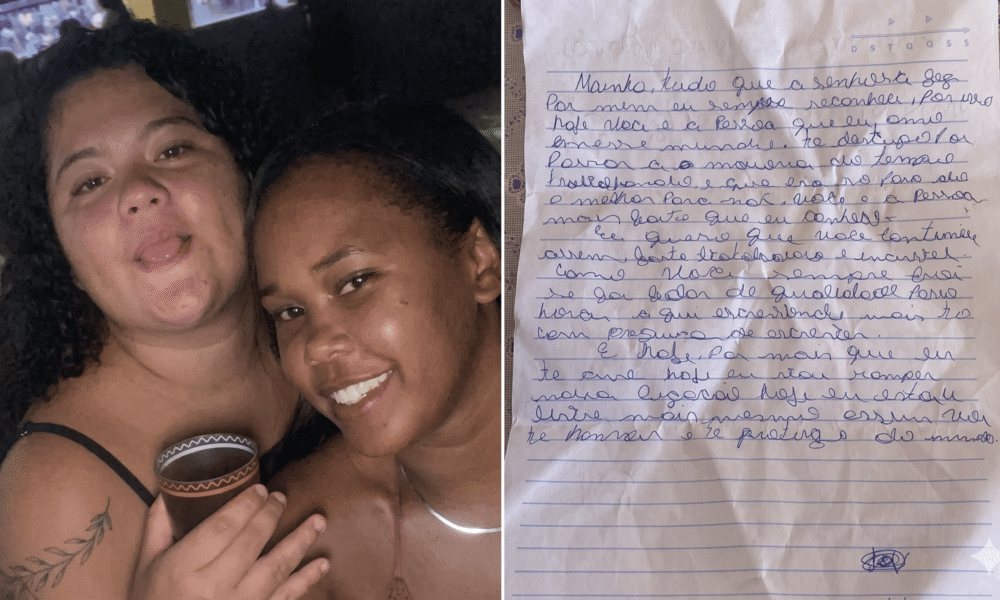 D S T Q Q S S
Mainha, tudo que a senhora fez
Por mim eu sempre reconheci, Por isso
hoje voce e a Pessoa que eu amo
nesse mundo. te
Passar a maioria do tempo
trabalhando, e que era so para da
o melhor Para nos. Voce e a Pessoa
mais forte que eu conheso.
Eu quero que você continue
assim, forte trabalhadora e incrivel.
Como você sempre
de qualidade Para
aqui escrevendo mais to
com preguisa de escrever.
E hoje, Por mais que eu
te ame hoje eu vou romper
nossa ligacao hoje eu estou
triste mais mesmo assim vou
te honrar e te protejo do mundo